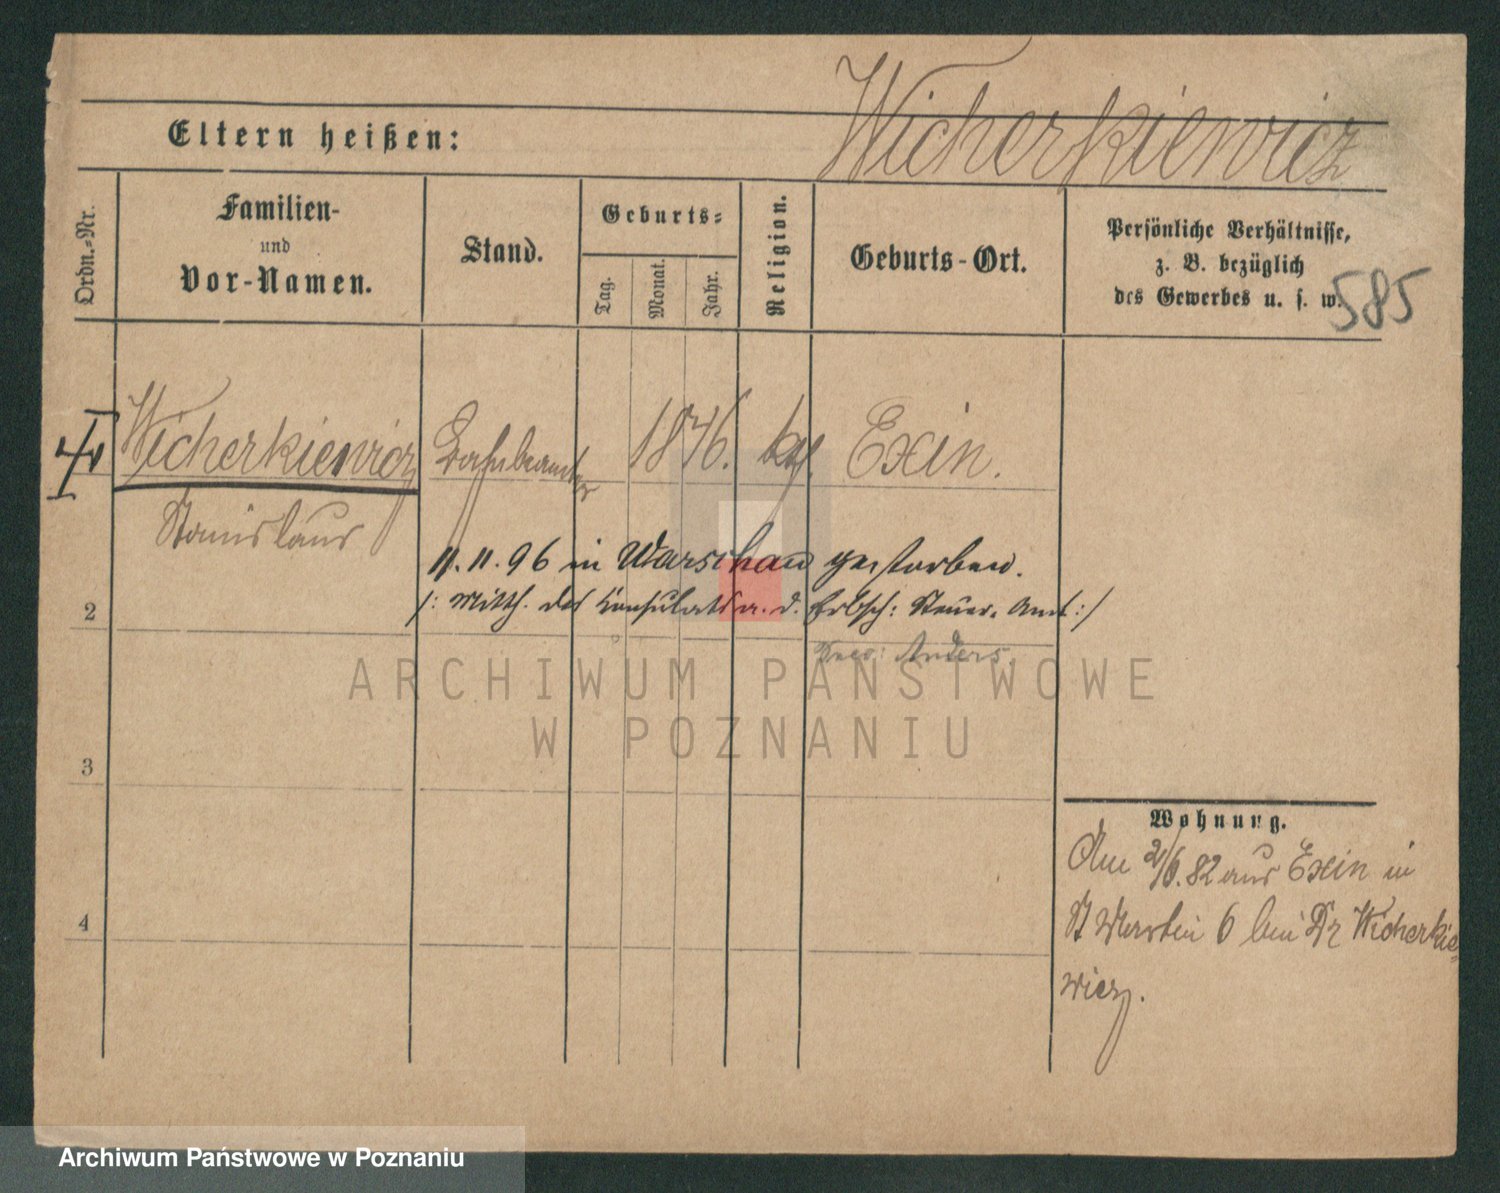 Wicherkiewicz
Eltern heißen:
Ordn.=Nr.
Familien-
und
Vor-Namen.
Stand.
Geburts=
Tag.
Monat.
Jahr.
Religion.
Geburts-Ort.
Persönliche Verhältnisse,
z. B. bezüglich
des Gewerbes u. s. w.
585
Wicherkiewicz
Stanislaus
Bahnbeamter
1846.
kath.
Exin.
11. 11. 96 in Warschau gestorben.
/: Mitth. des Konsulats a. d. Erbsch: Steuer. Amt :/
Anders.
2
3
4
Wohnung.
Am 2/6. 82 aus Exin in
St Martin 6 bei Dr Wicherkie=
wicz.
ARCHIWUM PAŃSTWOWE
W POZNANIU
Archiwum Państwowe w Poznaniu